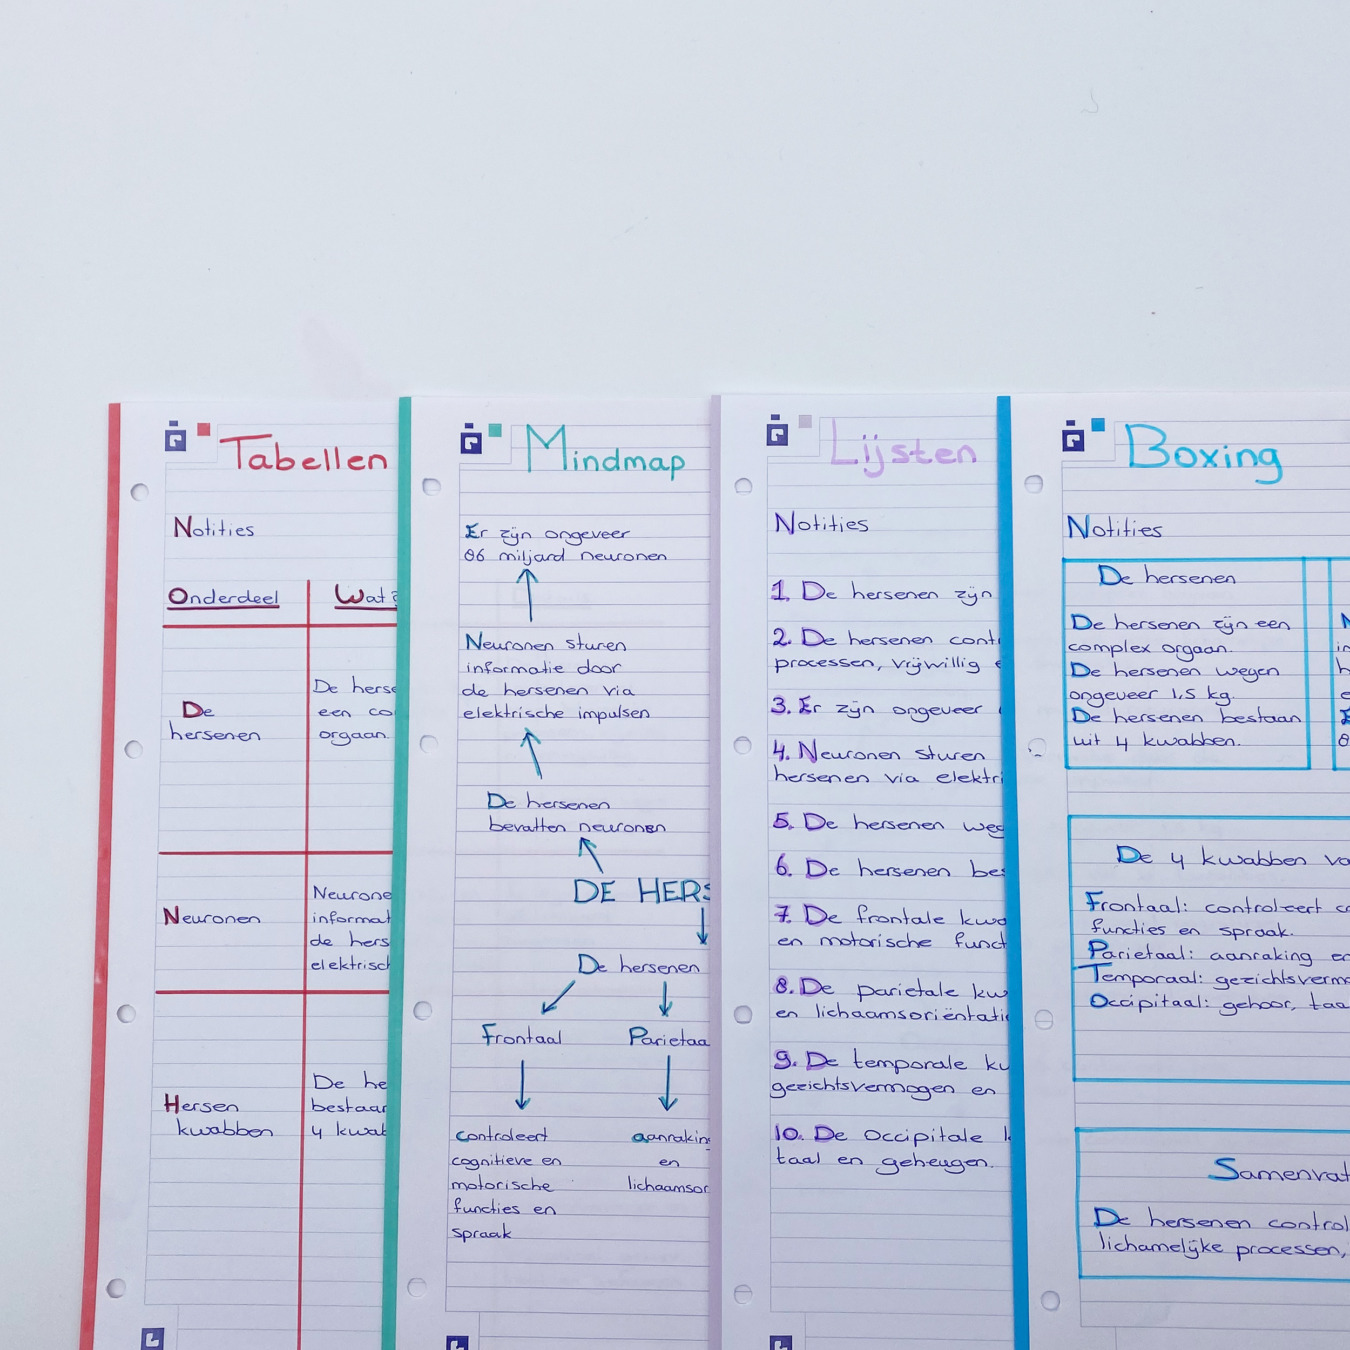 Tabellen
Notities
Onderdeel
Wat?
De
hersenen
De herse
een co
orgaan.
Neuronen
Neurone
informat
de hers
elektrisch
Hersen
kwabben
De he
bestaan
4 kwab
Mindmap
Er zijn ongeveer
86 miljard neuronen
Neuronen sturen
informatie door
de hersenen via
elektrische impulsen
De hersenen
bevatten neuronen
DE HERS
De hersenen
Frontaal
Parietaa
controleert
cognitieve en
motorische
functies en
spraak
aanraking
en
lichaamsor
Lijsten
Notities
1. De hersenen zijn
2. De hersenen cont
processen, vrijwillig e
3. Er zijn ongeveer
4. Neuronen sturen
hersenen via elektri
5. De hersenen weg
6. De hersenen bes
7. De frontale kwa
en motorische funct
8. De parietale kw
en lichaamsoriëntati
9. De temporale kw
gezichtsvermogen en
10. De Occipitale k
taal en geheugen.
Boxing
Notities
De hersenen
De hersenen zijn een
complex orgaan.
De hersenen wegen
ongeveer 1,5 kg.
De hersenen bestaan
uit 4 kwabben.
De 4 kwabben va
Frontaal: controleert co
functies en spraak.
Parietaal: aanraking en
Temporaal: gezichtsverm
Occipitaal: gehoor, taa
Samenvat
De hersenen control
lichamelijke processen,